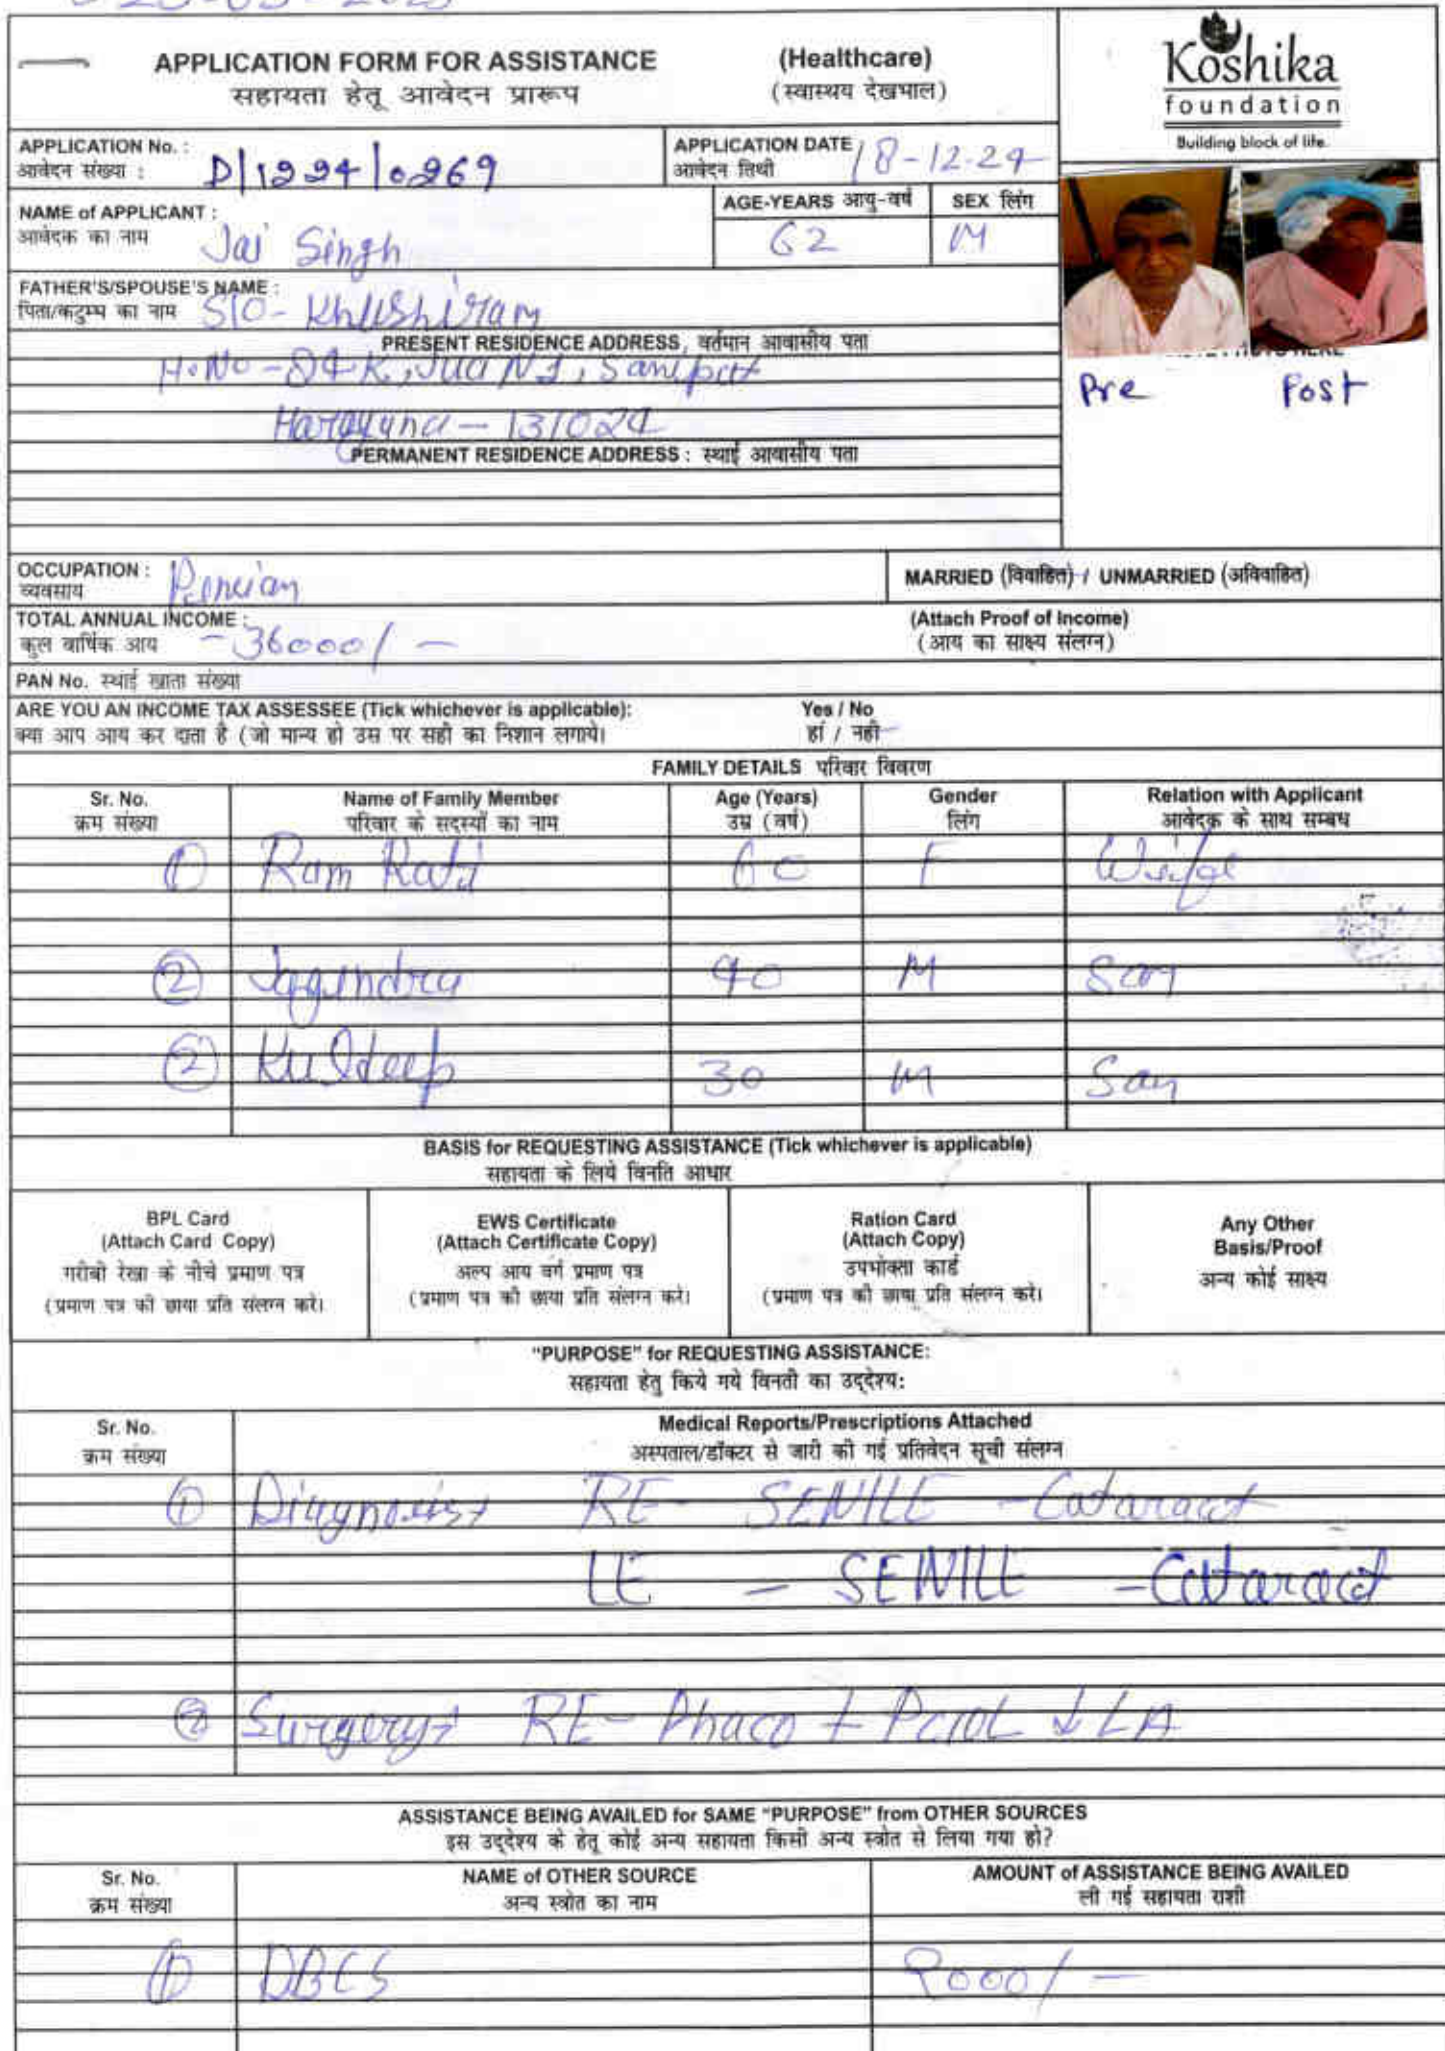 APPLICATION FORM FOR ASSISTANCE (Healthcare)
सहायता हेतू आवेदन प्रारूप (स्वास्थय देखभाल)
Koshika
foundation
Building block of life.
APPLICATION No. :
आवेदन संख्या : D/1224/0269
APPLICATION DATE
आवेदन तिथी 18-12-24
NAME of APPLICANT :
आवेदक का नाम Jai Singh
AGE-YEARS आयु-वर्ष 62
SEX लिंग M
FATHER'S/SPOUSE'S NAME :
पिता/कटुम्ब का नाम S/O- Khushiram
PRESENT RESIDENCE ADDRESS, वर्तमान आवासीय पता
H.No-84-K, Jua N1, Sanipat
Harayana - 131024
Pre Post
PERMANENT RESIDENCE ADDRESS : स्थाई आवासीय पता
OCCUPATION :
व्यवसाय Pencian
MARRIED (विवाहित) / UNMARRIED (अविवाहित)
TOTAL ANNUAL INCOME :
कुल वार्षिक आय - 36000/-
(Attach Proof of Income)
(आय का साक्ष्य संलग्न)
PAN No. स्थाई खाता संख्या
ARE YOU AN INCOME TAX ASSESSEE (Tick whichever is applicable): Yes / No
क्या आप आय कर दाता है (जो मान्य हो उस पर सही का निशान लगाये। हां / नही
FAMILY DETAILS परिवार विवरण
Sr. No. Name of Family Member Age (Years) Gender Relation with Applicant
क्रम संख्या परिवार के सदस्यों का नाम उम्र (वर्ष) लिंग आवेदक के साथ सम्बध
① Ram Rati 60 F Weifge
② Jagindra 40 M Son
② Kuldeep 30 M Son
BASIS for REQUESTING ASSISTANCE (Tick whichever is applicable)
सहायता के लिये विनति आधार
BPL Card
(Attach Card Copy)
गरीबी रेखा के नीचे प्रमाण पत्र
(प्रमाण पत्र की छाया प्रति संलग्न करे।
EWS Certificate
(Attach Certificate Copy)
अल्प आय वर्ग प्रमाण पत्र
(प्रमाण पत्र की छाया प्रति संलग्न करे।
Ration Card
(Attach Copy)
उपभोक्ता कार्ड
(प्रमाण पत्र की छाया प्रति संलग्न करे।
Any Other
Basis/Proof
अन्य कोई साक्ष्य
"PURPOSE" for REQUESTING ASSISTANCE:
सहायता हेतु किये गये विनती का उद्देश्य:
Sr. No. Medical Reports/Prescriptions Attached
क्रम संख्या अस्पताल/डॉक्टर से जारी की गई प्रतिवेदन सूची संलग्न
① Diagnosis RE- SENILE - Cataract
LE - SENILE - Cataract
② Surgery RE- Phaco + PCIOL ↓ LA
ASSISTANCE BEING AVAILED for SAME "PURPOSE" from OTHER SOURCES
इस उद्देश्य के हेतू कोई अन्य सहायता किसी अन्य स्त्रोत से लिया गया हो?
Sr. No. NAME of OTHER SOURCE AMOUNT of ASSISTANCE BEING AVAILED
क्रम संख्या अन्य स्त्रोत का नाम ली गई सहायता राशी
① DBCS 2000/-